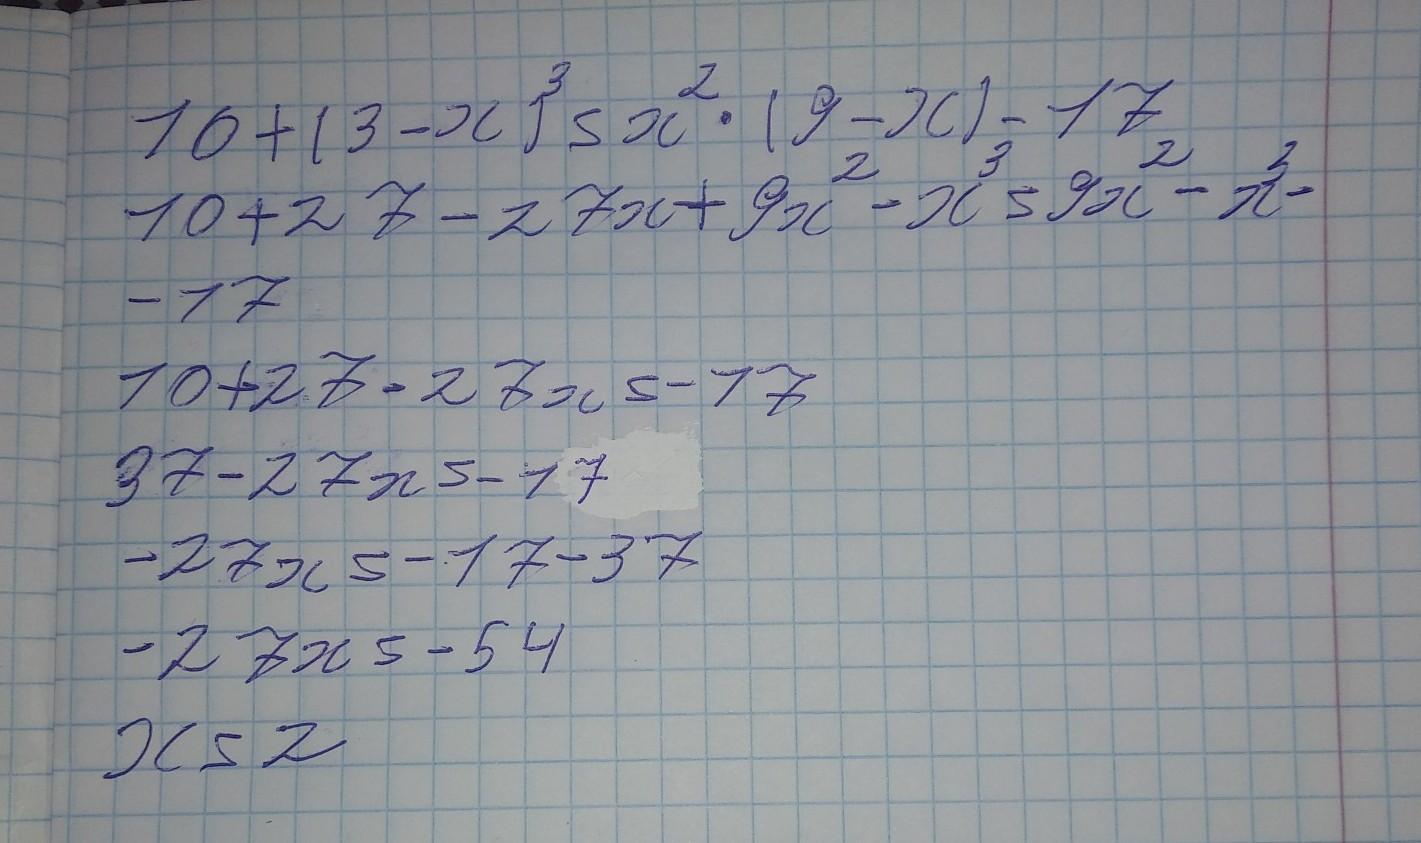 10+(3-x)³=x²·(9-x)-17
10+27-27x+9x²-x³=9x²-x³-
-17
10+27-27x=-17
37-27x=-17
-27x=-17-37
-27x=-54
x=2